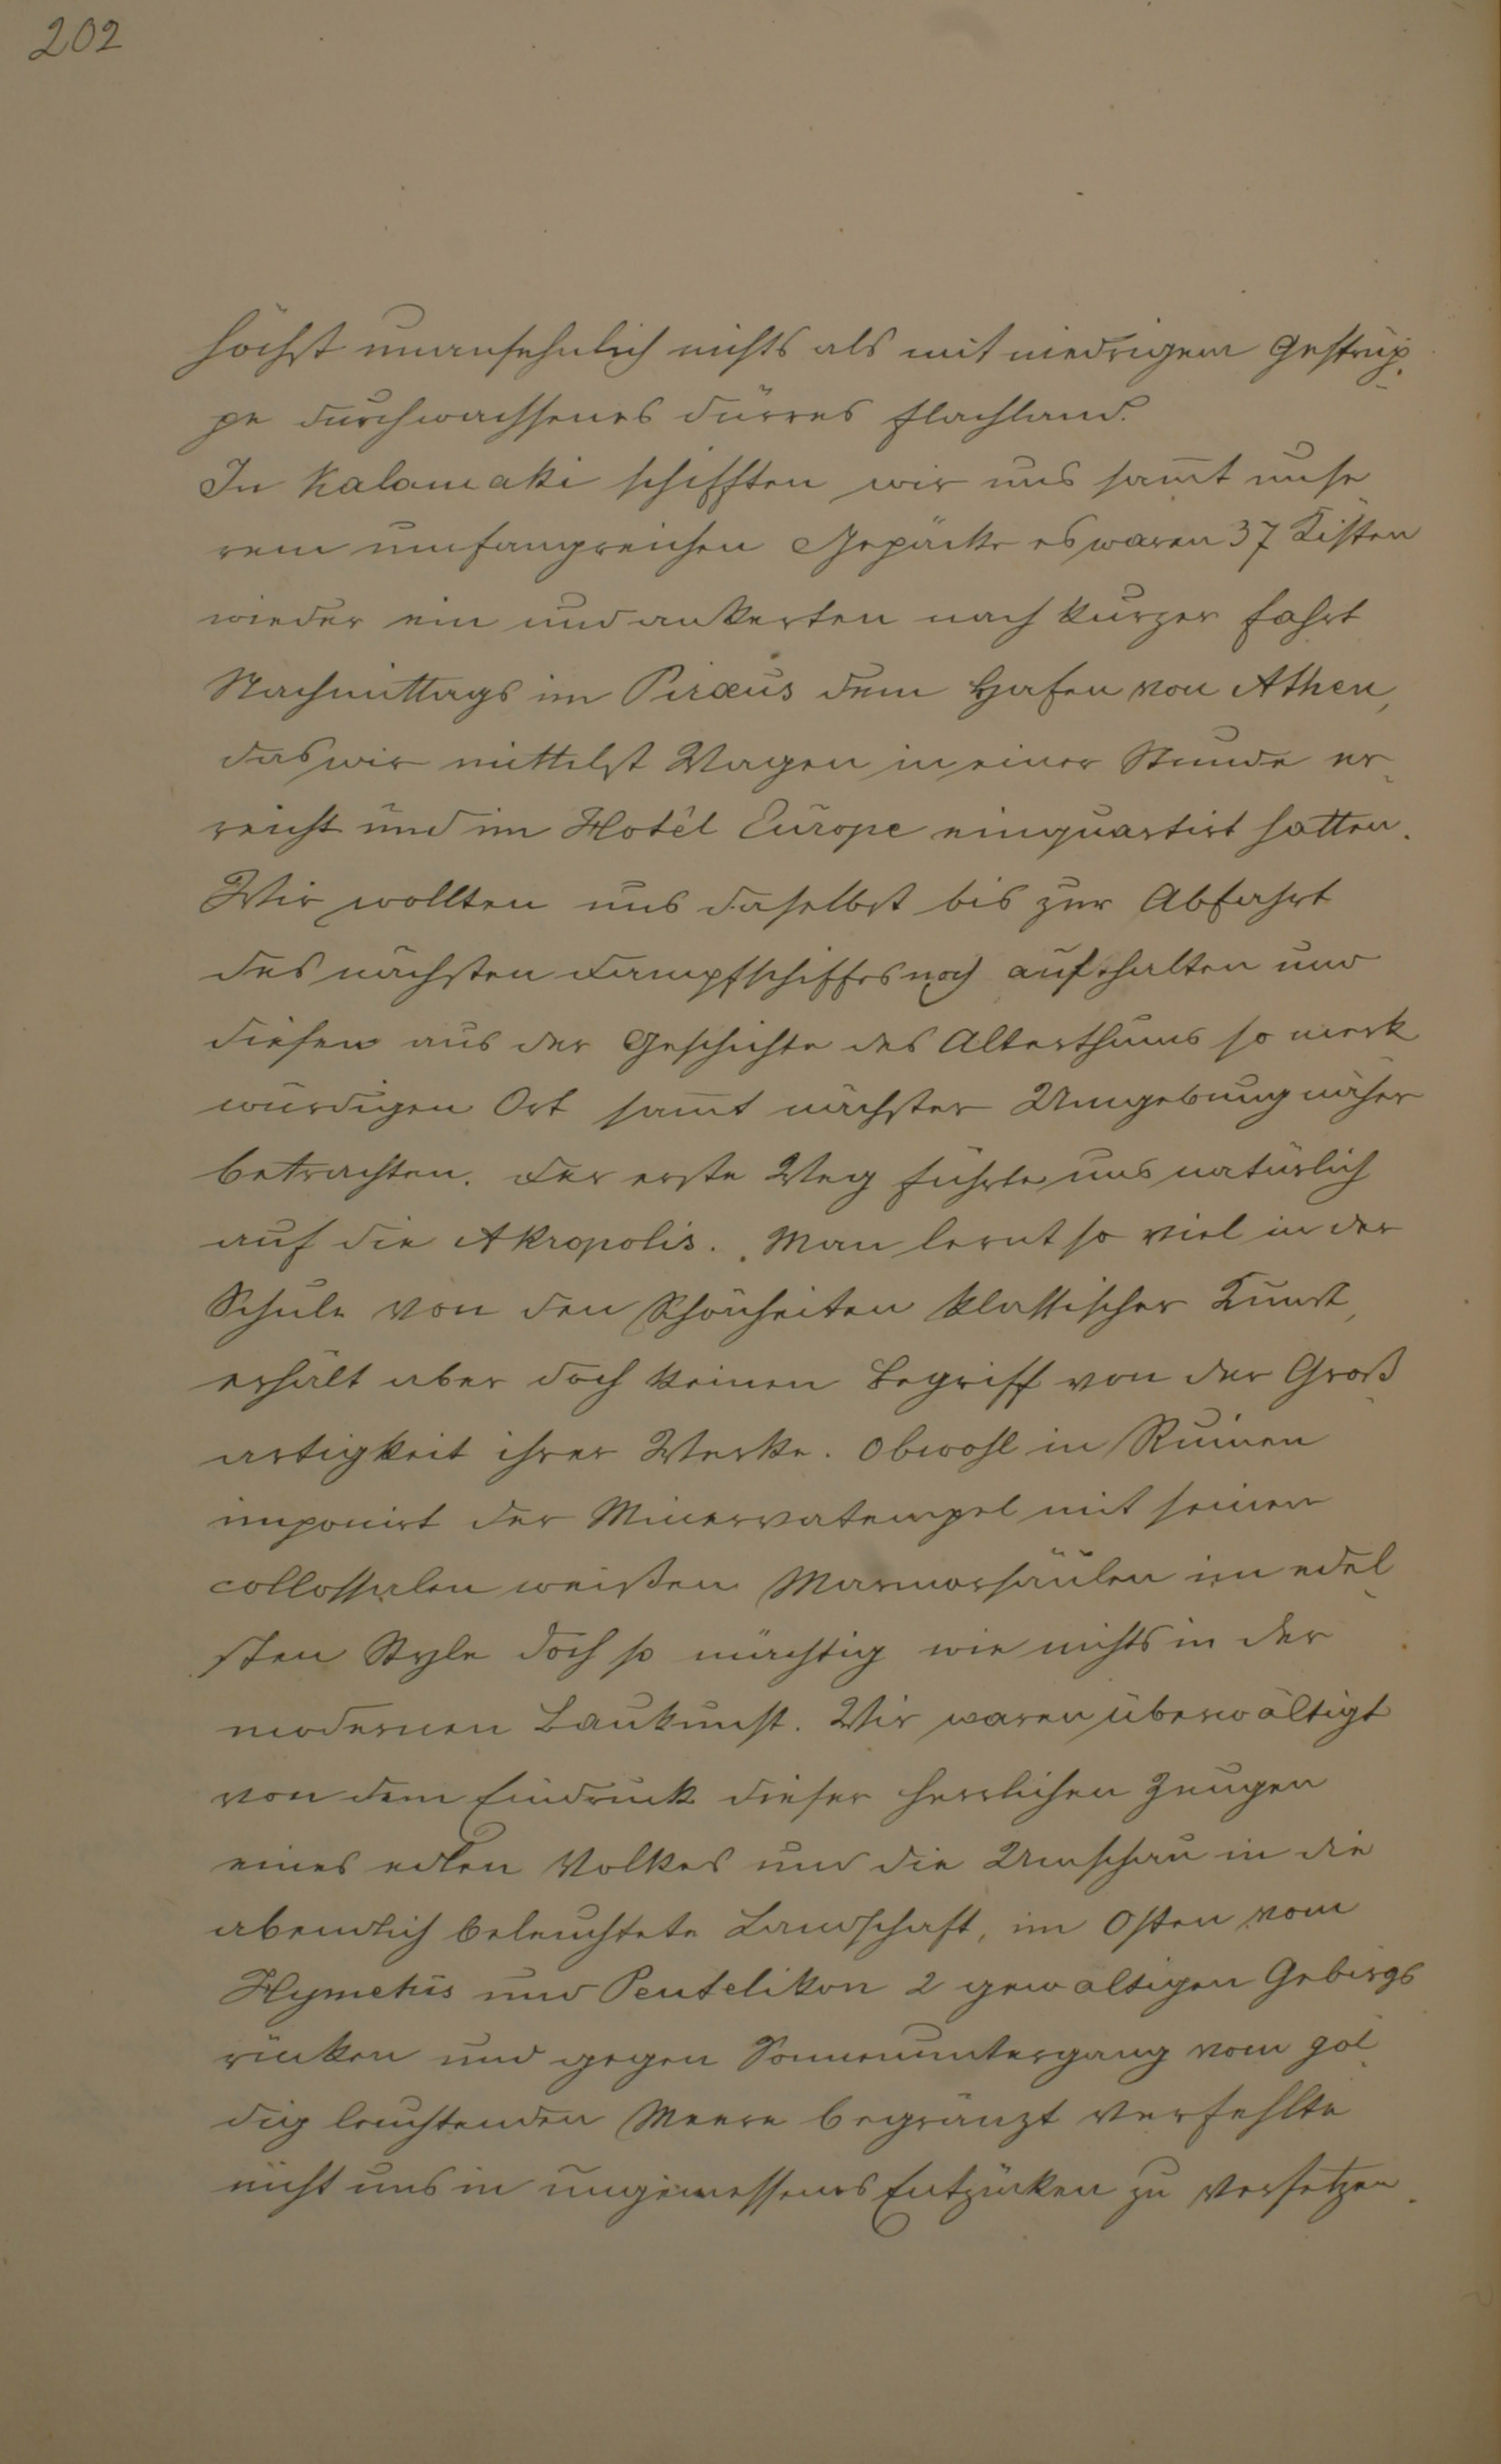 202
höchst unansehnlich nichts als mit niedrigem Gestrüp-
pe durchwachsenes dürres Flachland.
In Kalamaki schifften wir uns sam̄t unse
rem umfangreichen Gepäcke es waren 37 Kisten
wieder ein und ankerten nach kurzer Fahrt
Nachmittags im Piraeus dem Hafen von Athen,
das wir mittelst Wagen in einer Stunde er-
reicht und im Hotêl Europe einquartirt hatten.
Wir wollten uns daselbst bis zur Abfahrt
des nächsten Dampfschiffes noch aufhalten und
diesen aus der Geschichte des Alterthums so merk
würdigen Ort sam̄t nächster Umgebung näher
betrachten. Der erste Weg führte uns natürlich
auf die Akropolis. Man lernt so viel in der
Schule von den Schönheiten klassischer Kunst,
erhält aber doch keinen Begriff von der Groß-
artigkeit ihrer Werke. Obwohl in Ruinen
imponirt der Minervatempel mit seinen
collossalen weißen Marmorsäulen im edel-
sten Style doch so mächtig wie nichts in der
modernen Baukunst. Wir waren überwältigt
von dem Eindruck dieser herrlichen Zeugen
eines edlen Volkes und die Umschau in die
abendlich beleuchtete Landschaft, im Osten vom
Hymetus und Pentelikon 2 gewaltigen Gebirgs
rücken und gegen Sonnenuntergang vom gol-
dig leuchtenden Meere begränzt verfehlte
nicht uns in ungemessenes Entzücken zu versetzen.